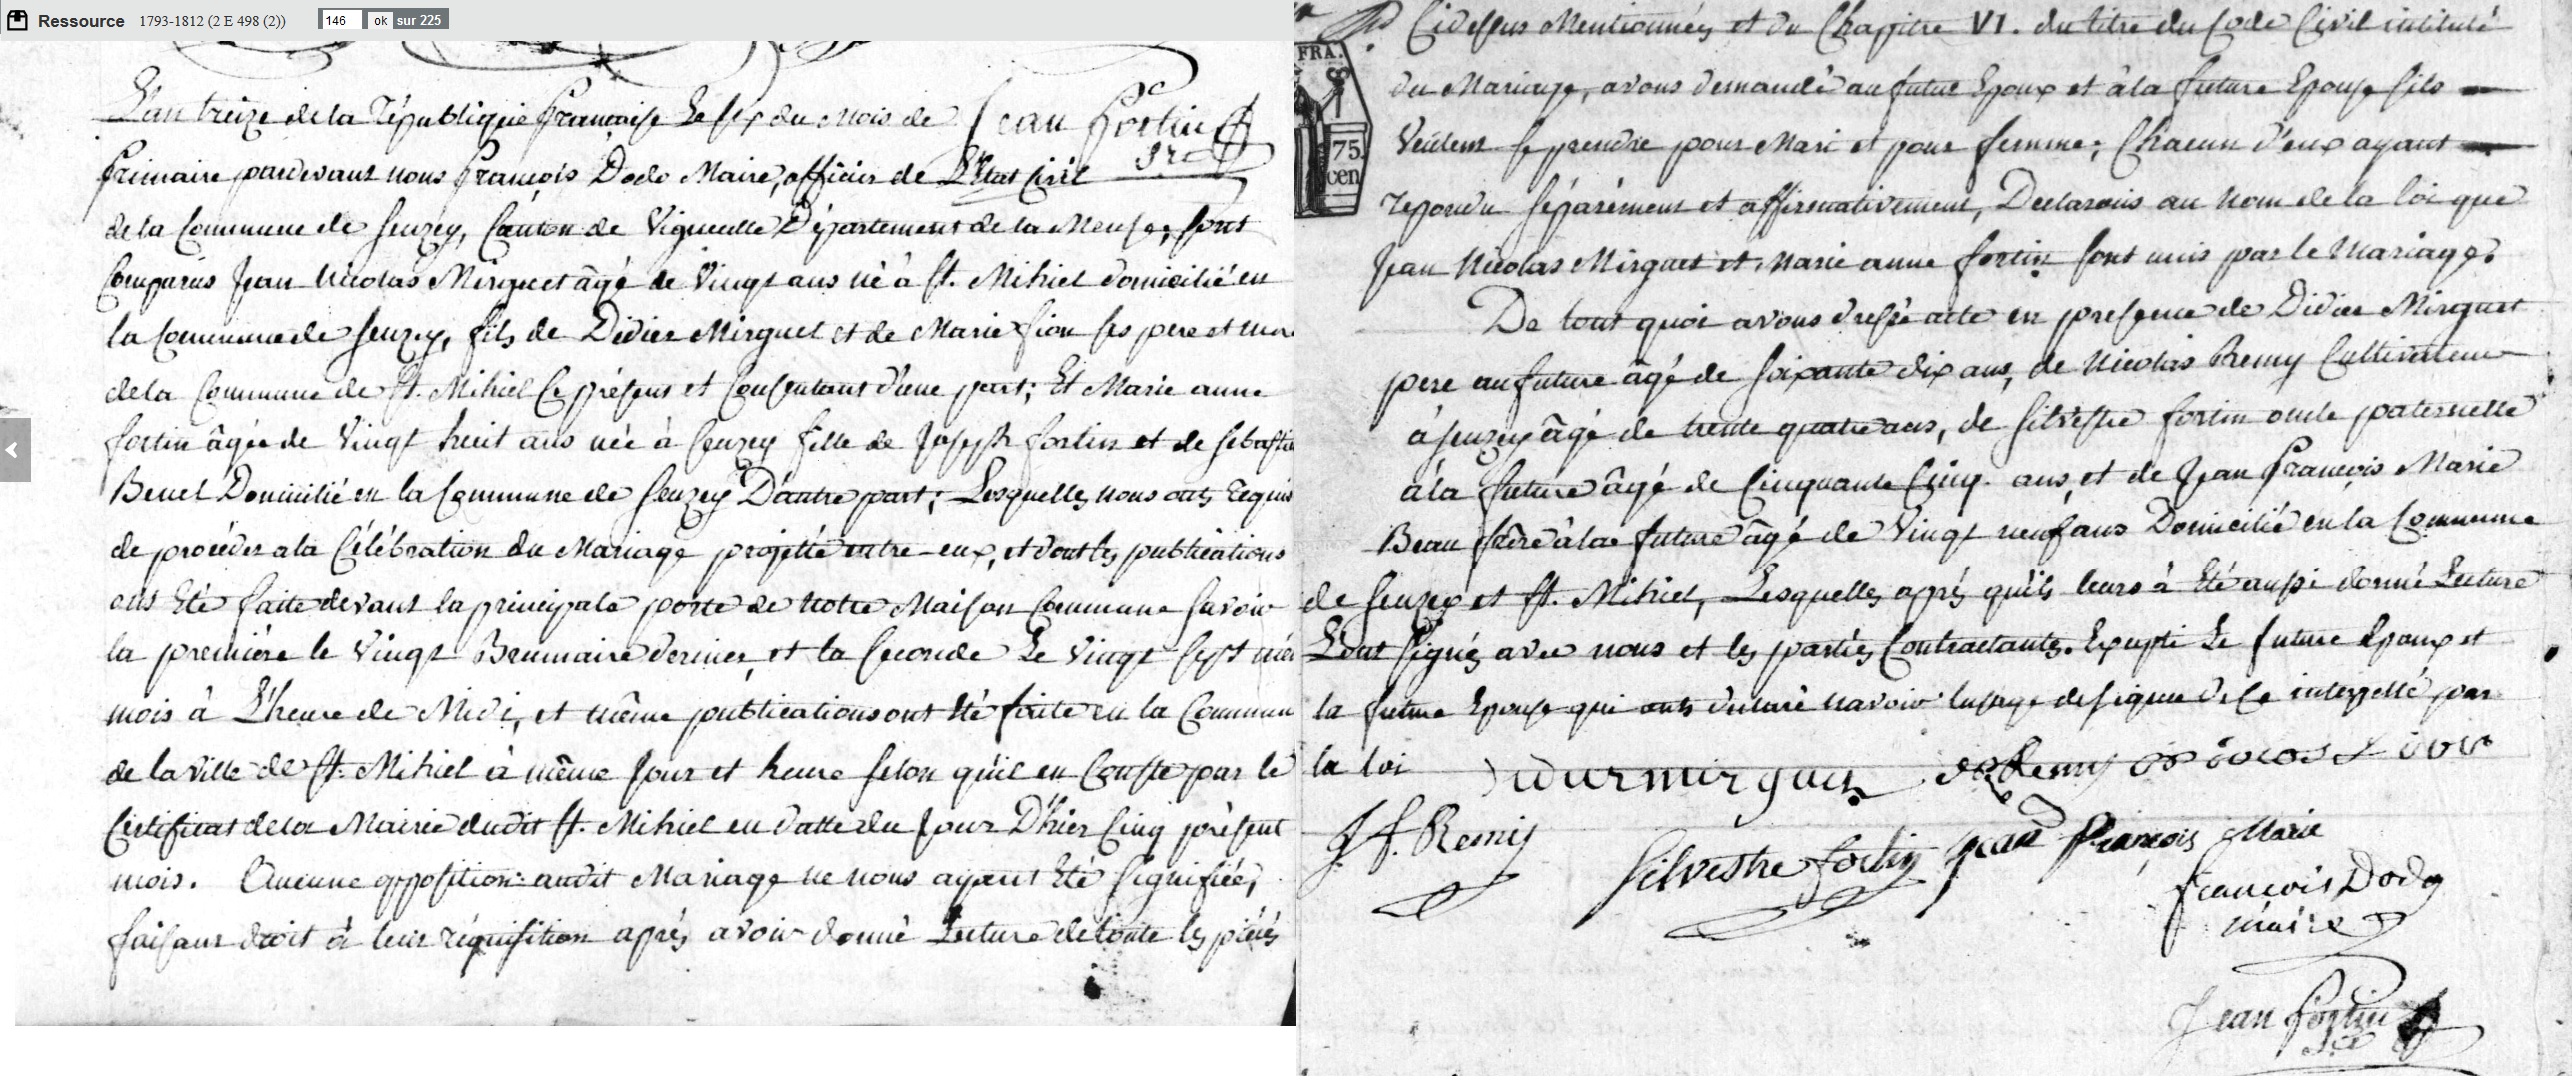 Ressource 1793-1812 (2 E 498 (2)) 146 ok sur 225
L'an treize de la République française Le six du mois de Jean Fortin
frimaire pardevant nous françois Dodo Maire, officier de L'Etat Civil
de la Commune de Seuzey, Canton de Vigneulle Département de la Meuse, sont
Comparus Jean Nicolas Mirguet âgé de Vingt ans né à St. Mihiel domicilié en
la Commune de Seuzey, fils de Didier Mirguet et de Marie Sion ses pere et mere
de la Commune de St. Mihiel Ce présent et Consentant d'une part; Et Marie anne
fortin âgée de Vingt huit ans née à Seuzey fille de Joseph fortin et de sebastie
Benel Domicilié en la Commune de Seuzey D'autre part; Lesquelles nous onts requis
de procéder a la Célébration du Mariage projetté entre-eux, et dont les publications
onts Eté faite devant la principale porte de notre Maison Commune savoir
la première le Vingt Brumaire dernier, et la seconde Le Vingt sept même
mois à L'heure de Midi, et même publications ont été faite en la Commun
de la Ville de St. Mihiel à même jour et heure selon qu'il en Conste par le
Certificat de la Mairie dudit St. Mihiel en datte du jour D'hier Cinq présent
mois. Aucune opposition audit Mariage ne nous ayant Eté signifiée,
faisant droit à leur réquisition après avoir donné Lecture de toute les pièces
FRA.
75.
cen
Cidessus Mentionnées et du Chapitre VI. du titre du Code Civil intitulé
du Mariage, avons demandé au futur Epoux et à la future Epouse sils
Veulent se prendre pour Mari et pour femme; Chacun d'eux ayant
repondu séparément et affirmativement, Declarons au nom de la loi que
Jean Nicolas Mirguet et Marie anne fortin sont unis par le Mariage.
De tout quoi avons dressé acte en presence de Didier Mirguet
pere au future âgé de soixante dix ans, de Nicolas Remy Cultivateur
à Seuzey âgé de trente quatre ans, de Silvestre fortin oncle paternelle
à la future âgé de Cinquante Cinq ans, et de Jean françois Marie
Beau frère à la future âgé de Vingt neuf ans Domicilié en la Commune
de Seuzey et St. Mihiel, Lesquelles après qu'ils leurs à Eté aussi donné Lecture
L'ont signés avec nous et les parties Contractantes. Excepté Le future Epoux et
la future Epouse qui onts déclaré navoir lusage de signer de ce interpellé par
la loi
didier mirguet
J. f. Remy
Silvestre fortin Jean françois Marie
françois Dodo
maire
Jean Fortin